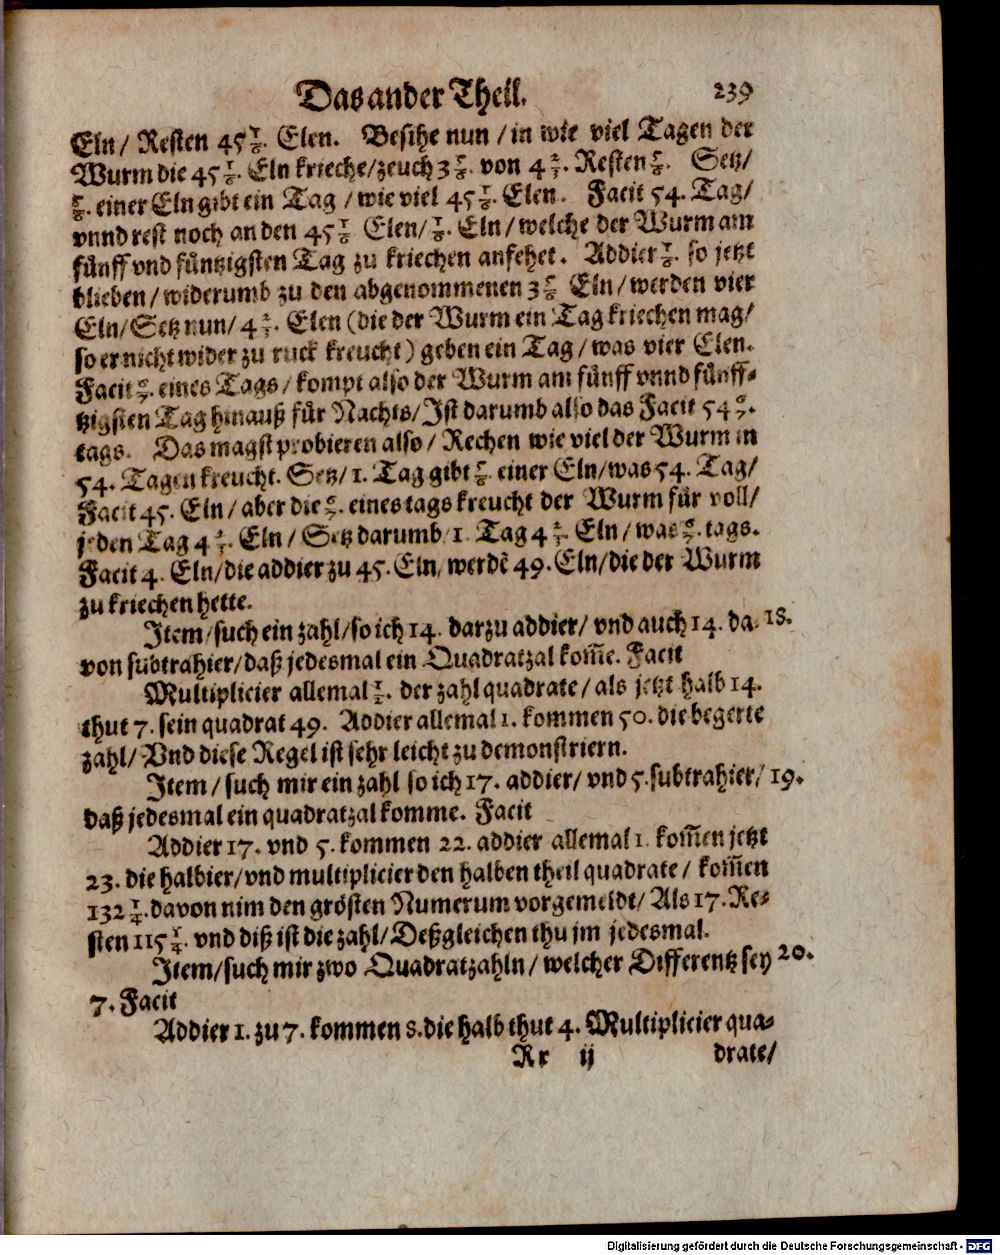 Das ander Theil. 239
Eln/ Resten 45 1/6. Elen. Besihe nun/ in wie viel Tagen der
Wurm die 45 1/6. Eln krieche/ zeuch 3 5/6. von 4 2/3. Resten 5/6. Setz/
5/6. einer Eln gibt ein Tag/ wie viel 45 1/6. Elen. Facit 54. Tag/
vnnd rest noch an den 45 1/6 Elen/ 1/6. Eln/ welche der Wurm am
fünff vnd füntzigsten Tag zu kriechen anfehet. Addier 1/6. so jetzt
blieben/ widerumb zu den abgenommenen 3 5/6 Eln/ werden vier
Eln/ Setz nun/ 4 2/3. Elen (die der Wurm ein Tag kriechen mag/
so er nicht wider zu ruck kreucht) geben ein Tag/ was vier Elen.
Facit 6/7. eines Tags/ kompt also der Wurm am fünff vnnd fünff-
tzigsten Tag hinauß für Nachts/ Ist darumb also das Facit 54 6/7.
tags. Das magst probieren also/ Rechen wie viel der Wurm in
54. Tagen kreucht. Setz/ 1. Tag gibt 5/6. einer Eln/ was 54. Tag/
Facit 45. Eln/ aber die 6/7. eines tags kreucht der Wurm für voll/
jeden Tag 4 2/3. Eln/ Setz darumb/ 1. Tag 4 2/3. Eln/ was 6/7. tags.
Facit 4. Eln/ die addier zu 45. Eln/ werdē 49. Eln/ die der Wurm
zu kriechen hette.
Item/ such ein zahl/ so ich 14. darzu addier/ vnd auch 14. da- 18.
von subtrahier/ daß jedesmal ein Quadratzal kom̄e. Facit
Multiplicier allemal 1/2. der zahl quadrate/ als jetzt halb 14.
thut 7. sein quadrat 49. Addier allemal 1. kommen 50. die begerte
zahl/ Vnd diese Regel ist sehr leicht zu demonstriern.
Item/ such mir ein zahl so ich 17. addier/ vnd 5. subtrahier/ 19.
daß jedesmal ein quadratzal komme. Facit
Addier 17. vnd 5. kommen 22. addier allemal 1. kom̄en jetzt
23. die halbier/ vnd multiplicier den halben theil quadrate/ kom̄en
132 1/4. davon nim den grösten Numerum vorgemeldt/ Als 17. Re-
sten 115 1/4. vnd diß ist die zahl/ Deßgleichen thu jm jedesmal.
Item/ such mir zwo Quadratzahln/ welcher Differentz sey 20.
7. Facit
Addier 1. zu 7. kommen 8. die halb thut 4. Multiplicier qua-
Rr ij drate/
Digitalisierung gefördert durch die Deutsche Forschungsgemeinschaft - DFG